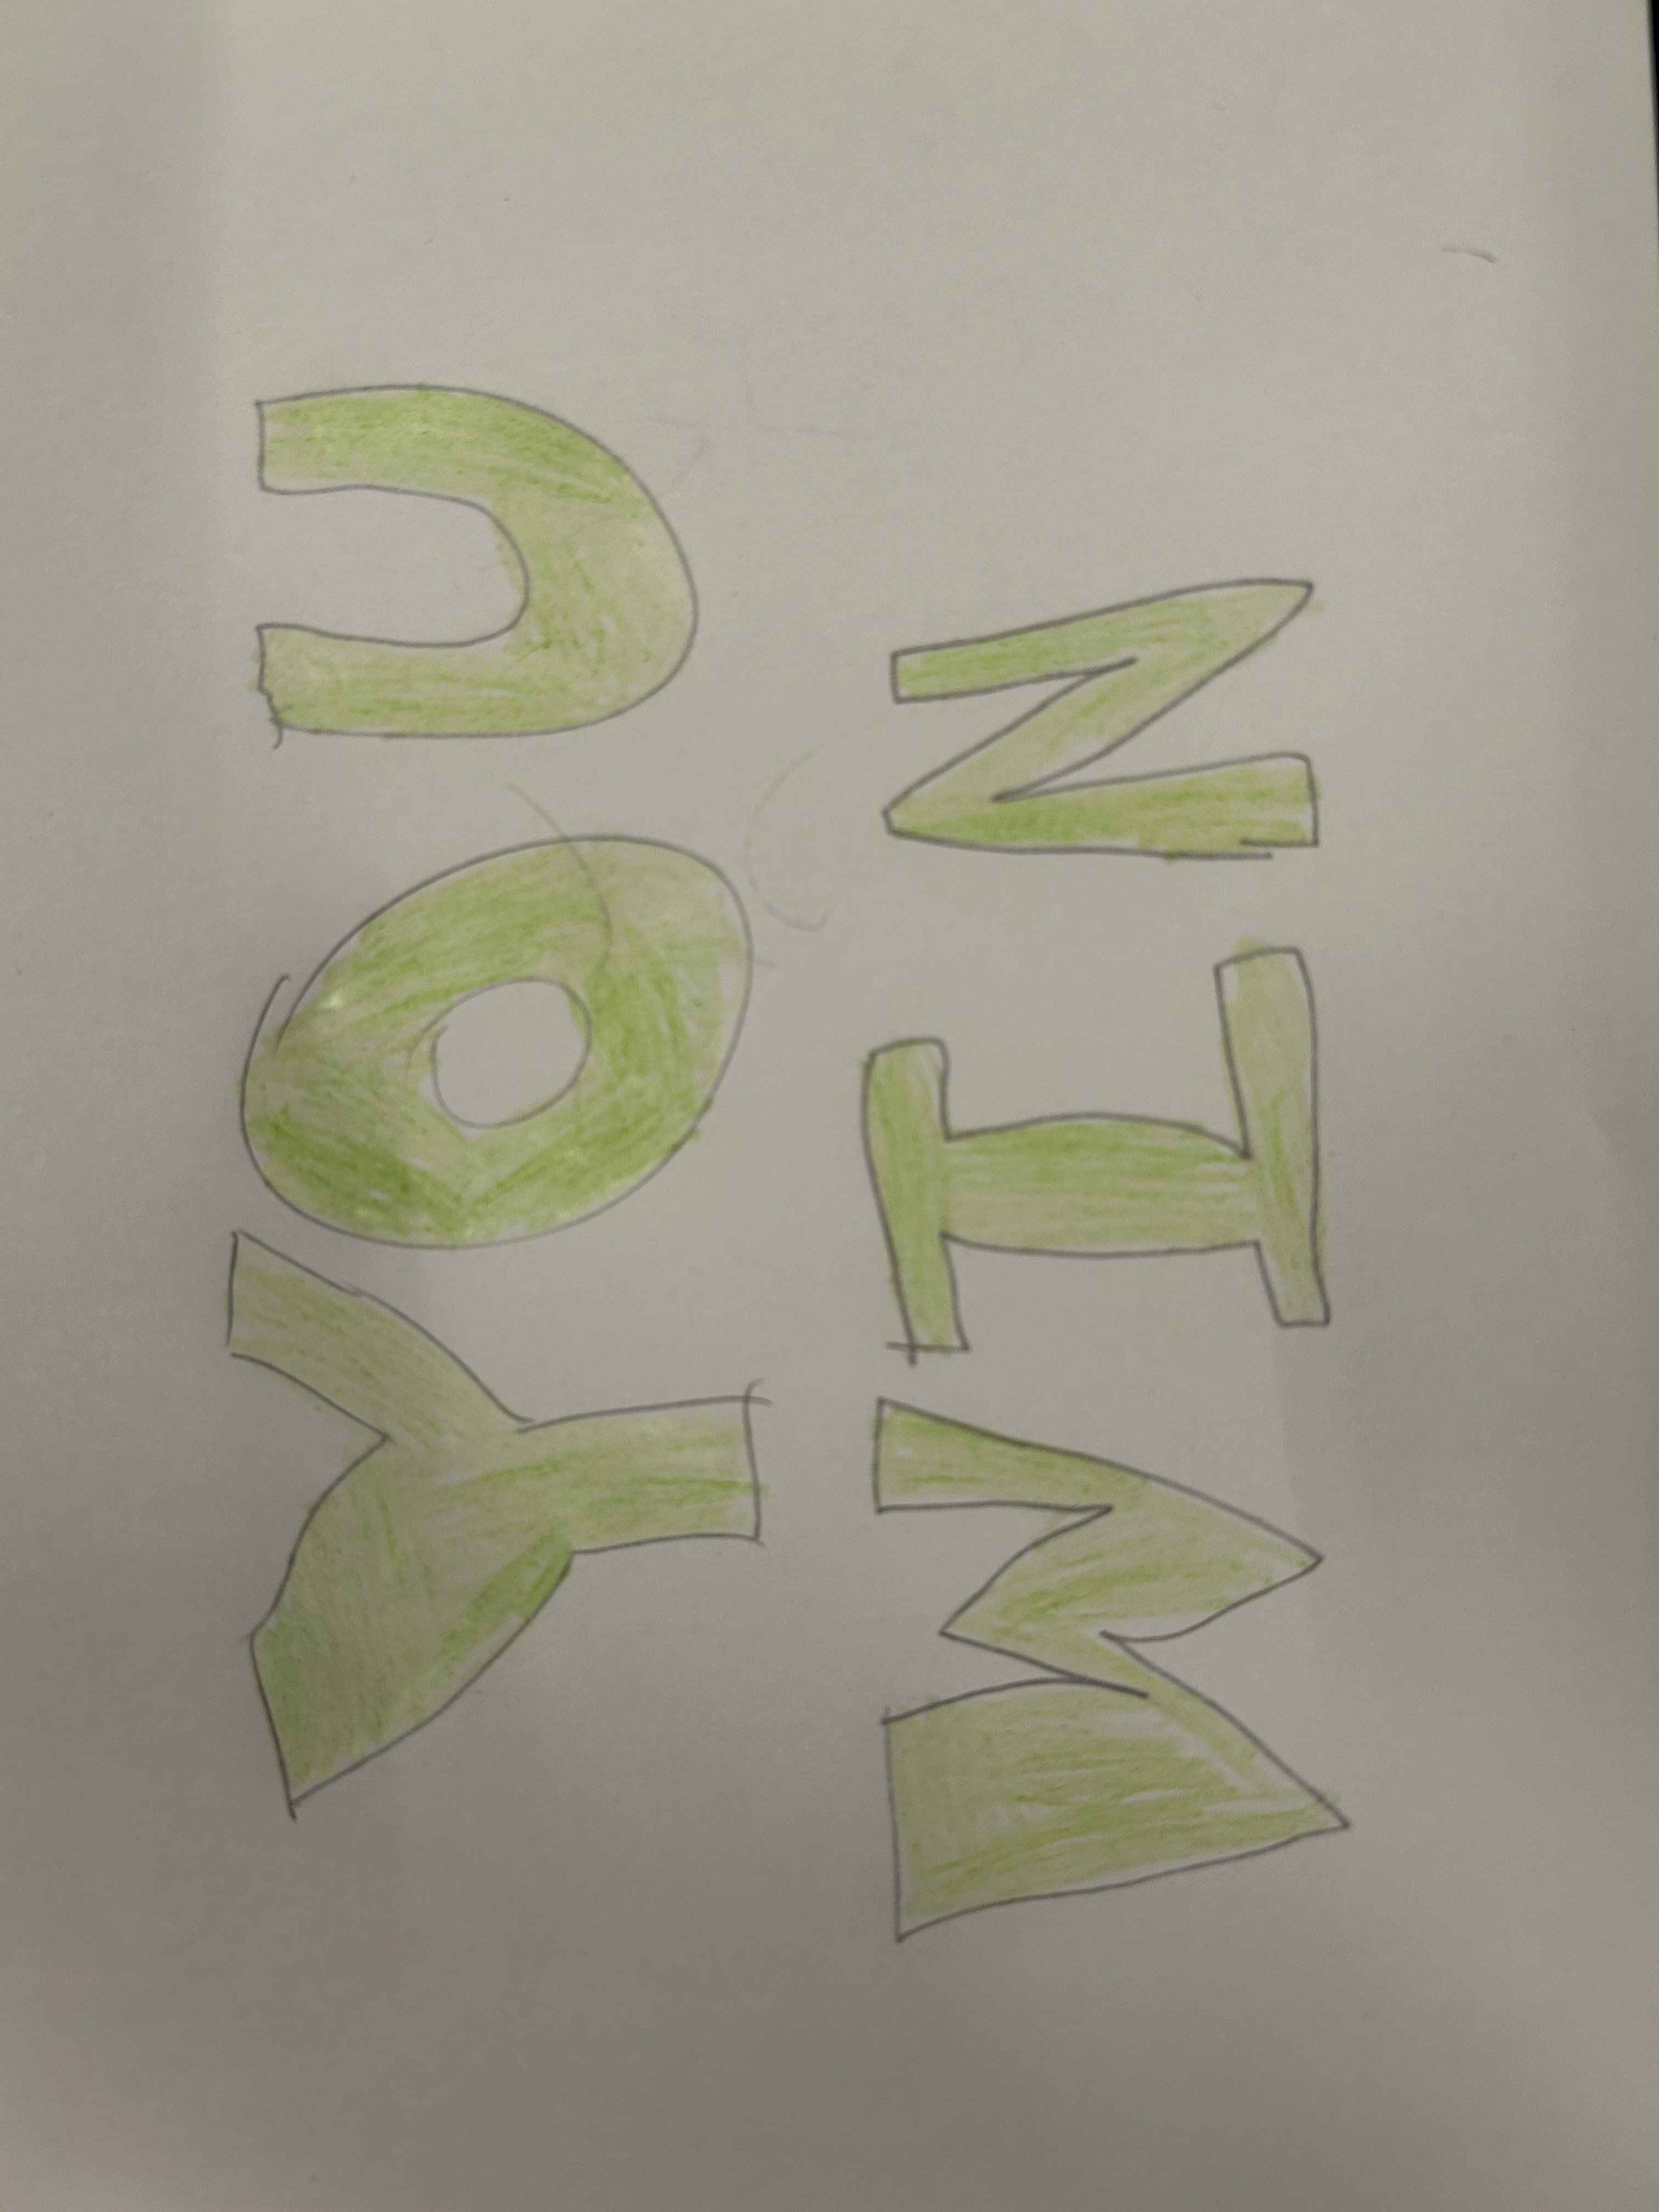 YOU
WIN